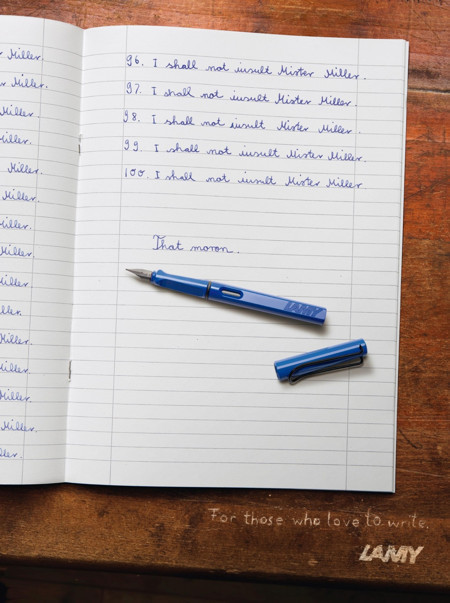 Miller.
Miller.
Miller
Miller.
Miller
Miller.
Miller.
Miller.
Miller.
ller.
Miller.
Miller.
Miller.
Miller.
ller.
96. I shall not insult Mister Miller.
97. I shall not insult Mister Miller.
98. I shall not insult Mister Miller.
99. I shall not insult Mister Miller.
100. I shall not insult Mister Miller.
That moron.
LAMY
For those who love to write.
LAMY